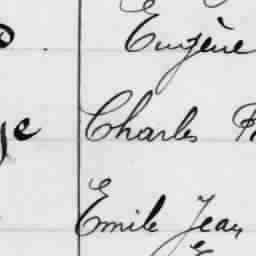 Eugène
Charles
Emile Jean